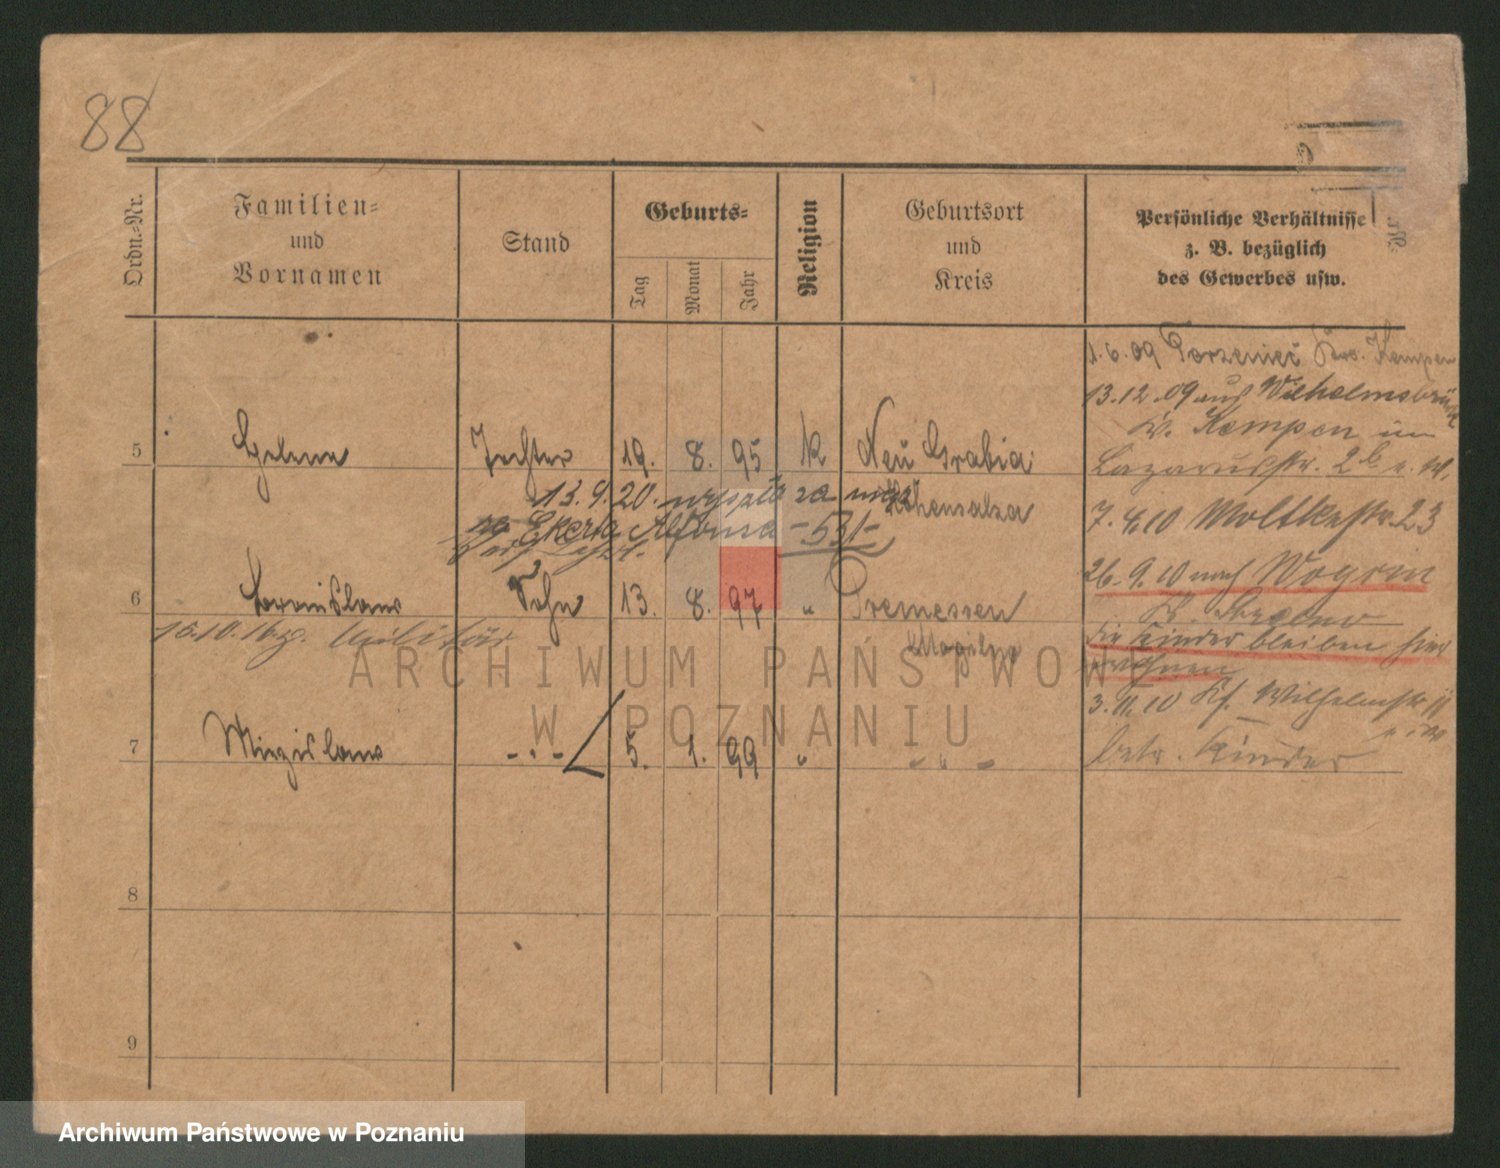 88
Ordn.-Nr.
Familien-
und
Vornamen
Stand
Geburts-
Tag
Monat
Jahr
Religion
Geburtsort
und
Kreis
Persönliche Verhältnisse
z. B. bezüglich
des Gewerbes usw.
1.6.09 Kempen
13.12.09 aus Wilhelmsbrück
Kr. Kempen in
Lazarusstr. 2b
7.4.10 Moltkestr. 23
26.9.10 nach Wogrin
die Kinder bleiben hier
wohnen
3.11.10 Wilhelmstr. 11
betr. Kinder
5 Helene Tochter 19. 8. 95 K Neu Grabia
Hohensalza
13.9.20. wyszła za mąż
za Ekerta Alfonsa
6 Bronislaw Sohn 13. 8. 97 " Tremessen
15.10.16 z. Militär
Mogilno
7 Miezislaw - " - 5. 1. 99 " - " -
8
9
ARCHIWUM PAŃSTWOWE
W POZNANIU
Archiwum Państwowe w Poznaniu